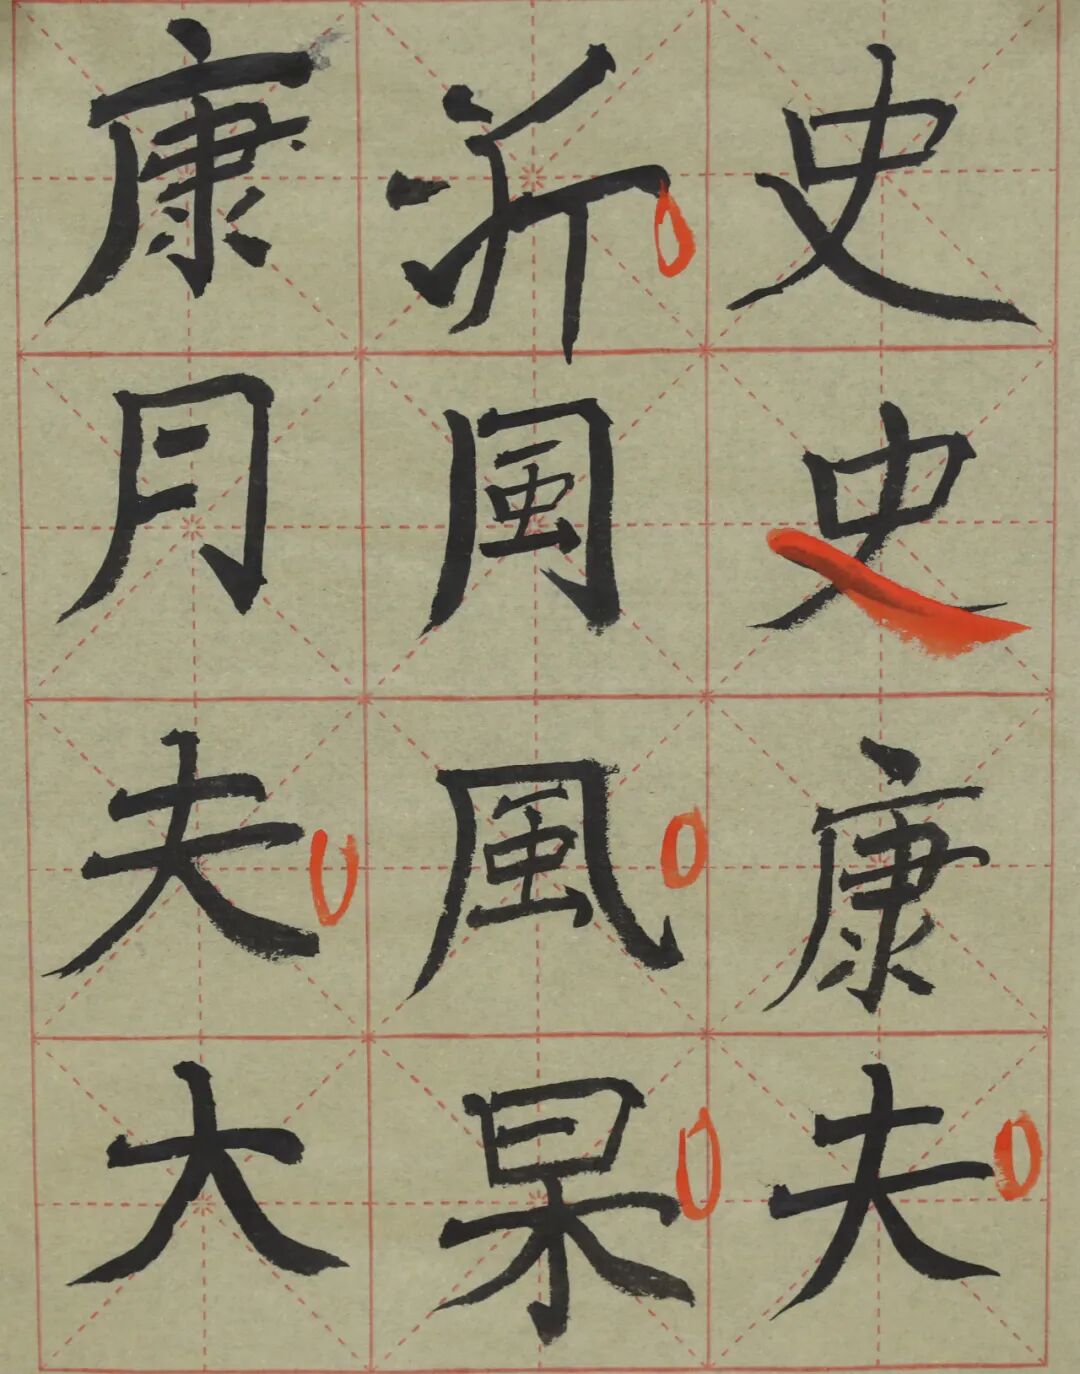 史史康夫
沂風風杲
康月夫大